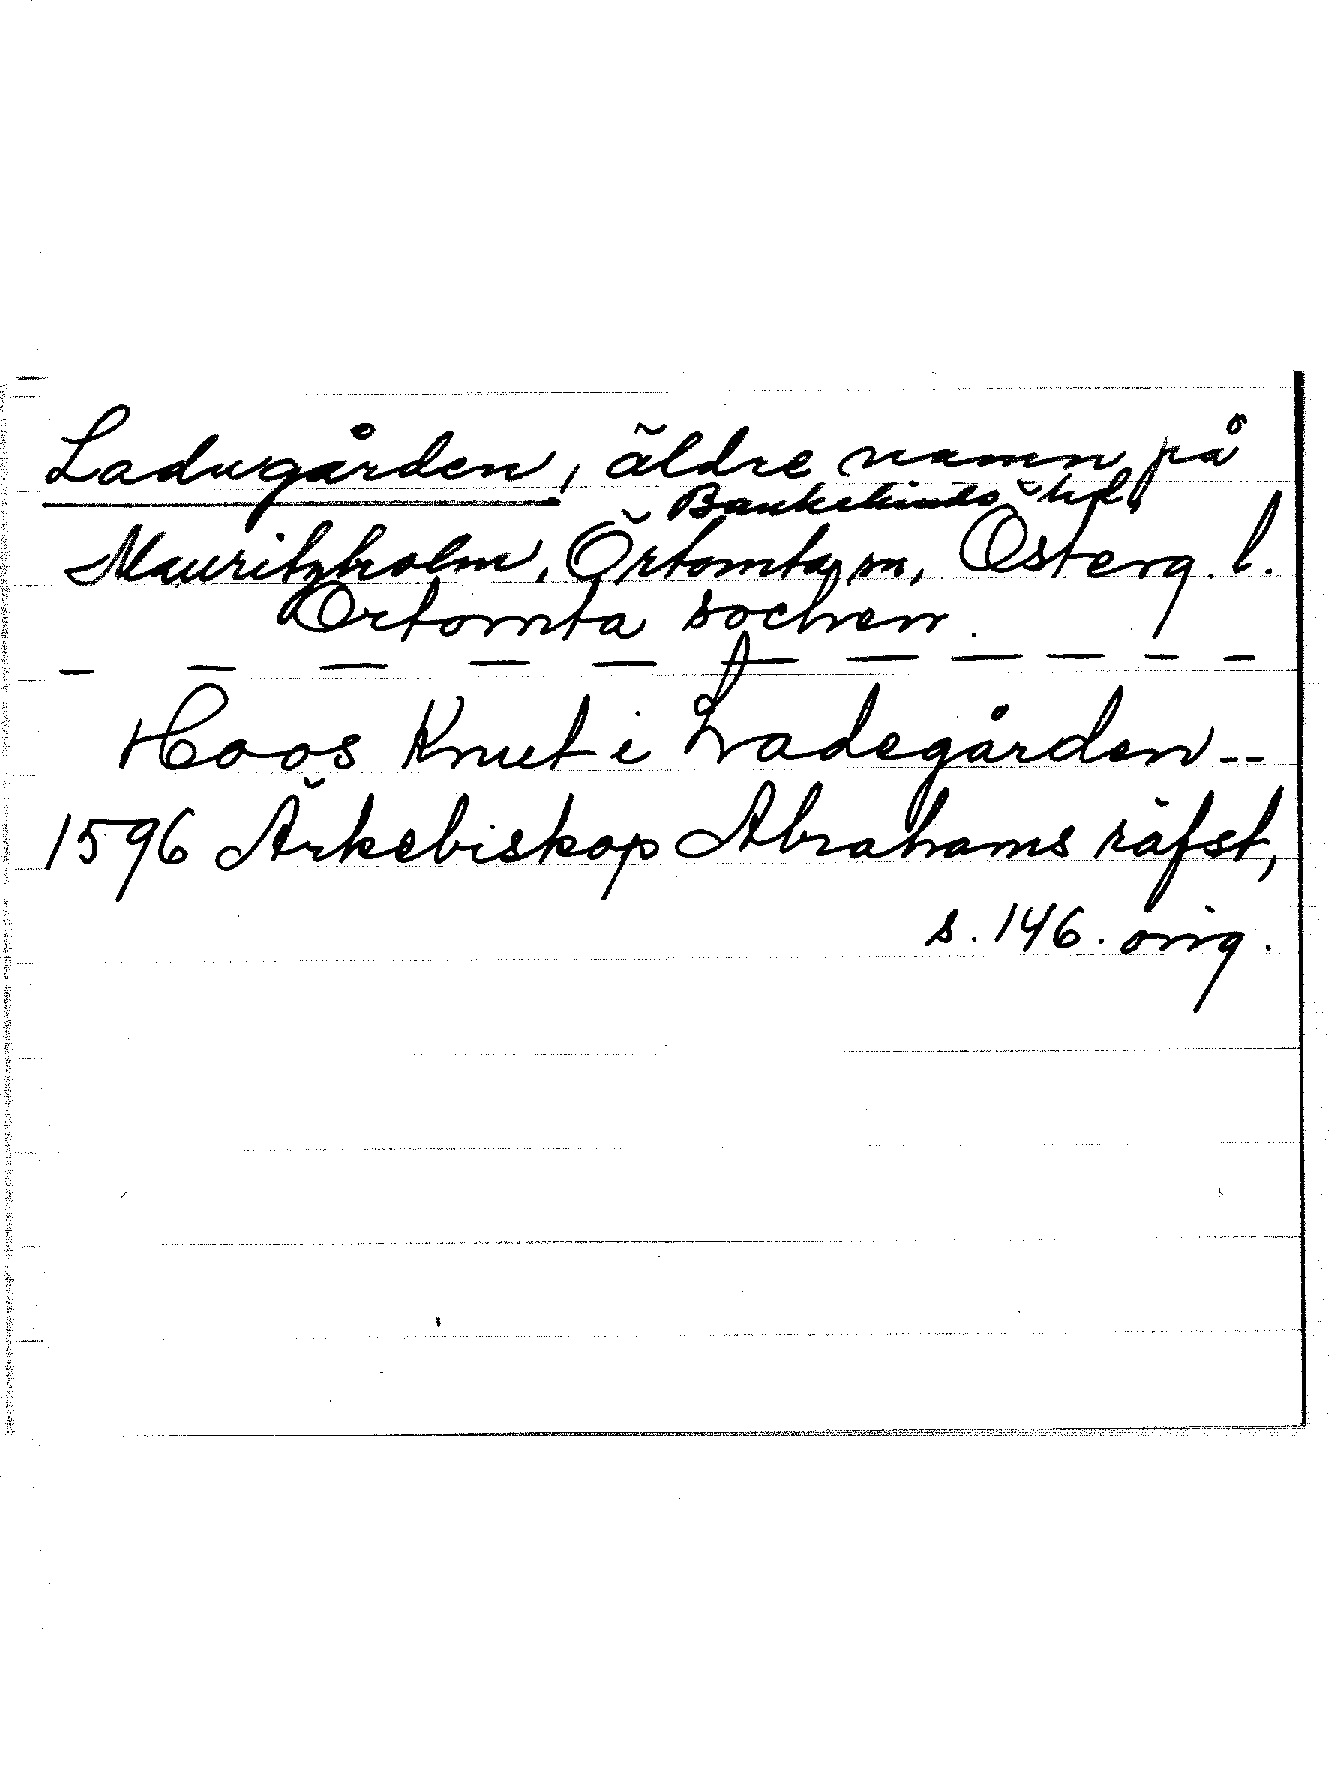 Ladugården, äldre namn på
Bankekinds hd.
Mauritzholm, Örtomta sn, Österg. l.
Örtomta sochen.
Hoos Knut i Ladegården --
1596 Ärkebiskop Abrahams räfst,
s. 146. orig.